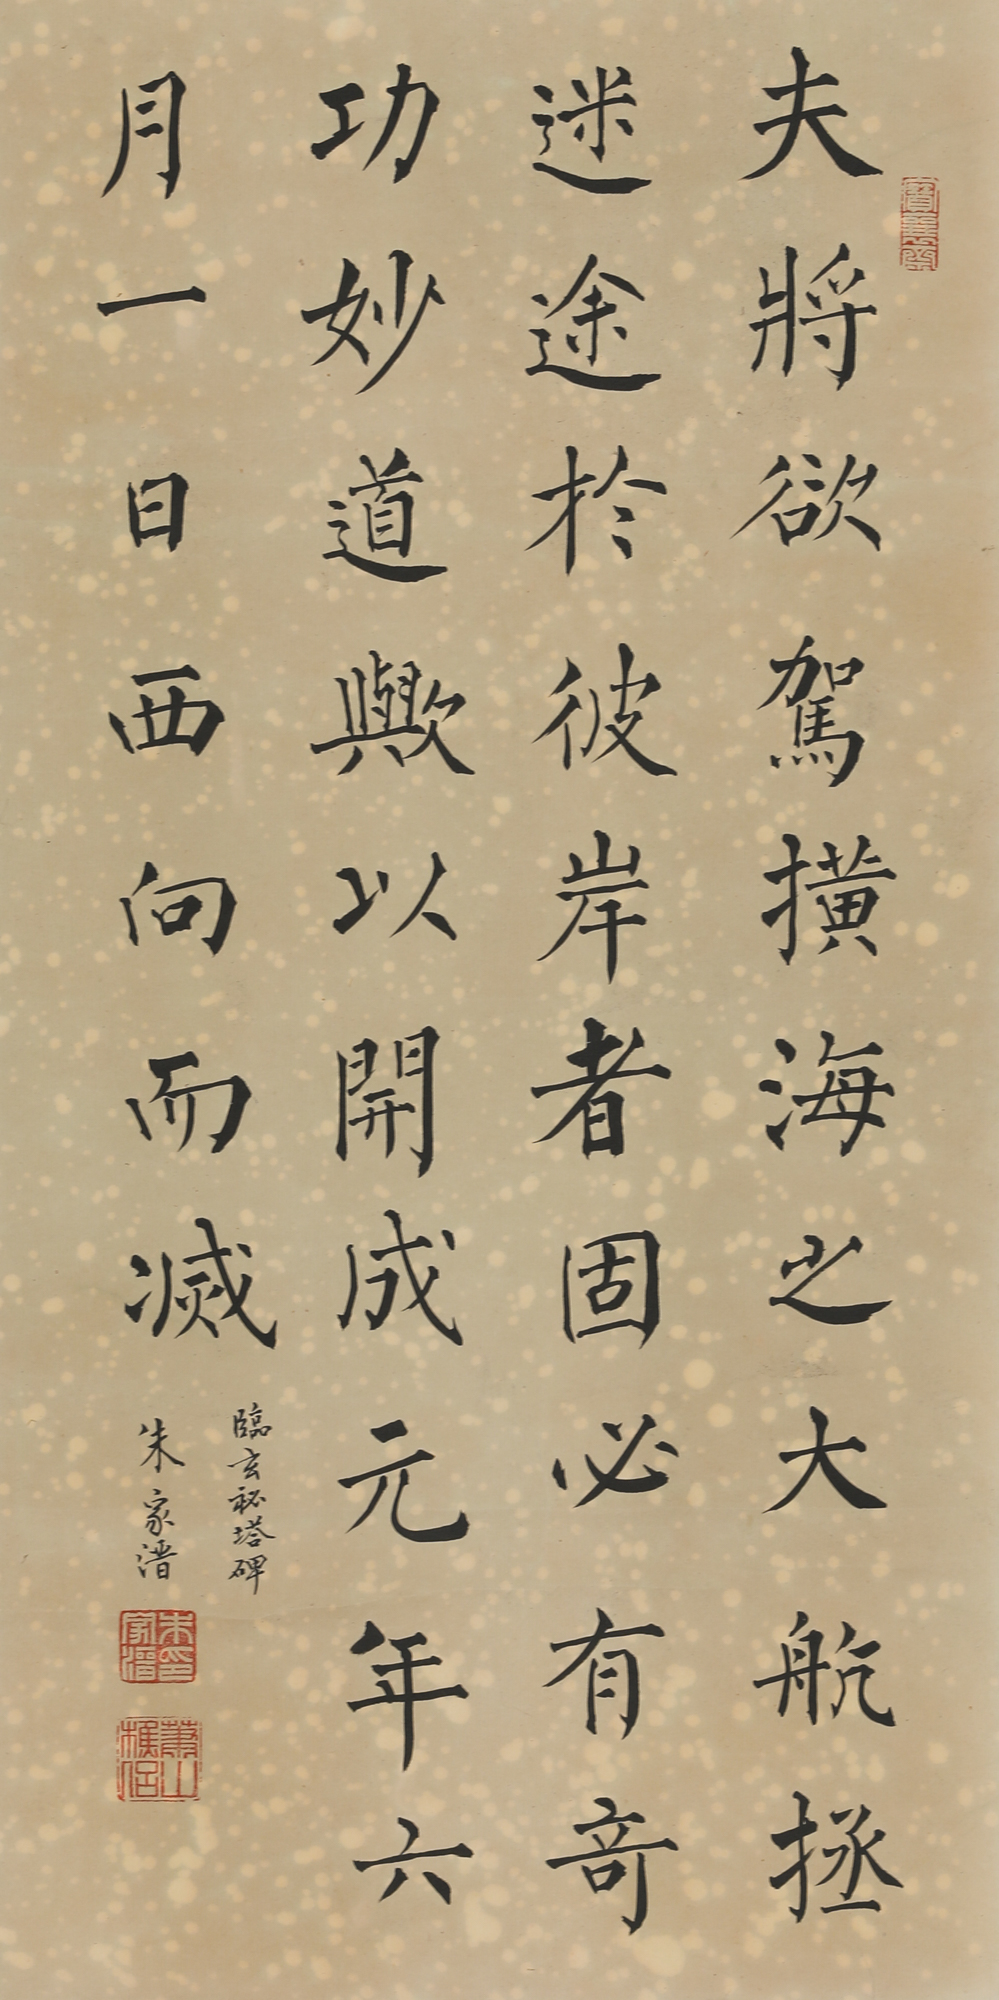 夫將欲駕撗海之大航拯
迷途於彼岸者固必有竒
功妙道歟以開成元年六
月一日西向而滅
臨玄秘塔碑
朱家溍
朱家溍印
蕭山樵侶